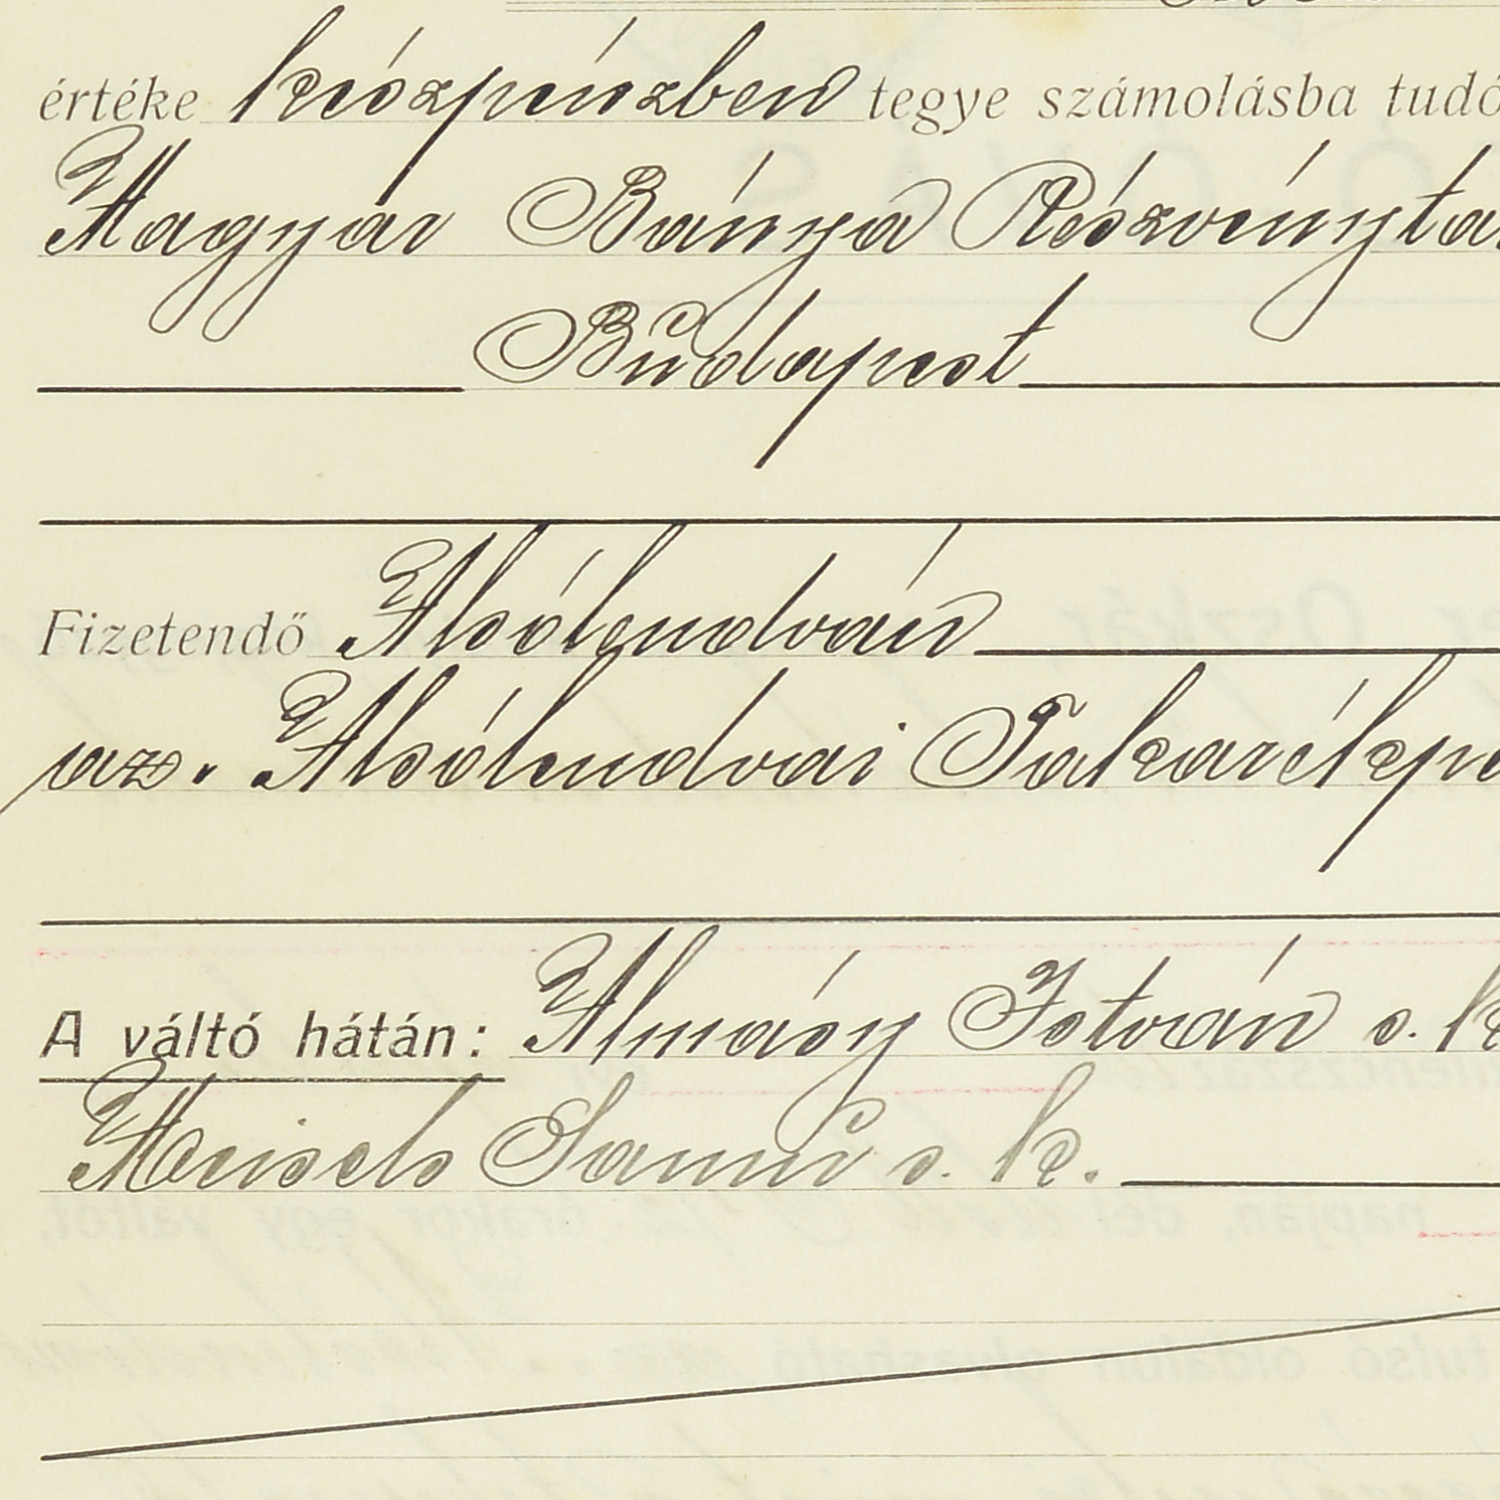 értéke készpénzben tegye számolásba tudó
Magyar Bánya Részvényta
Budapest
Fizetendő Alsólendván
az. Alsólendvai Takarékp
A váltó hátán: Almásy István s. k
Meisels Samu s. k.